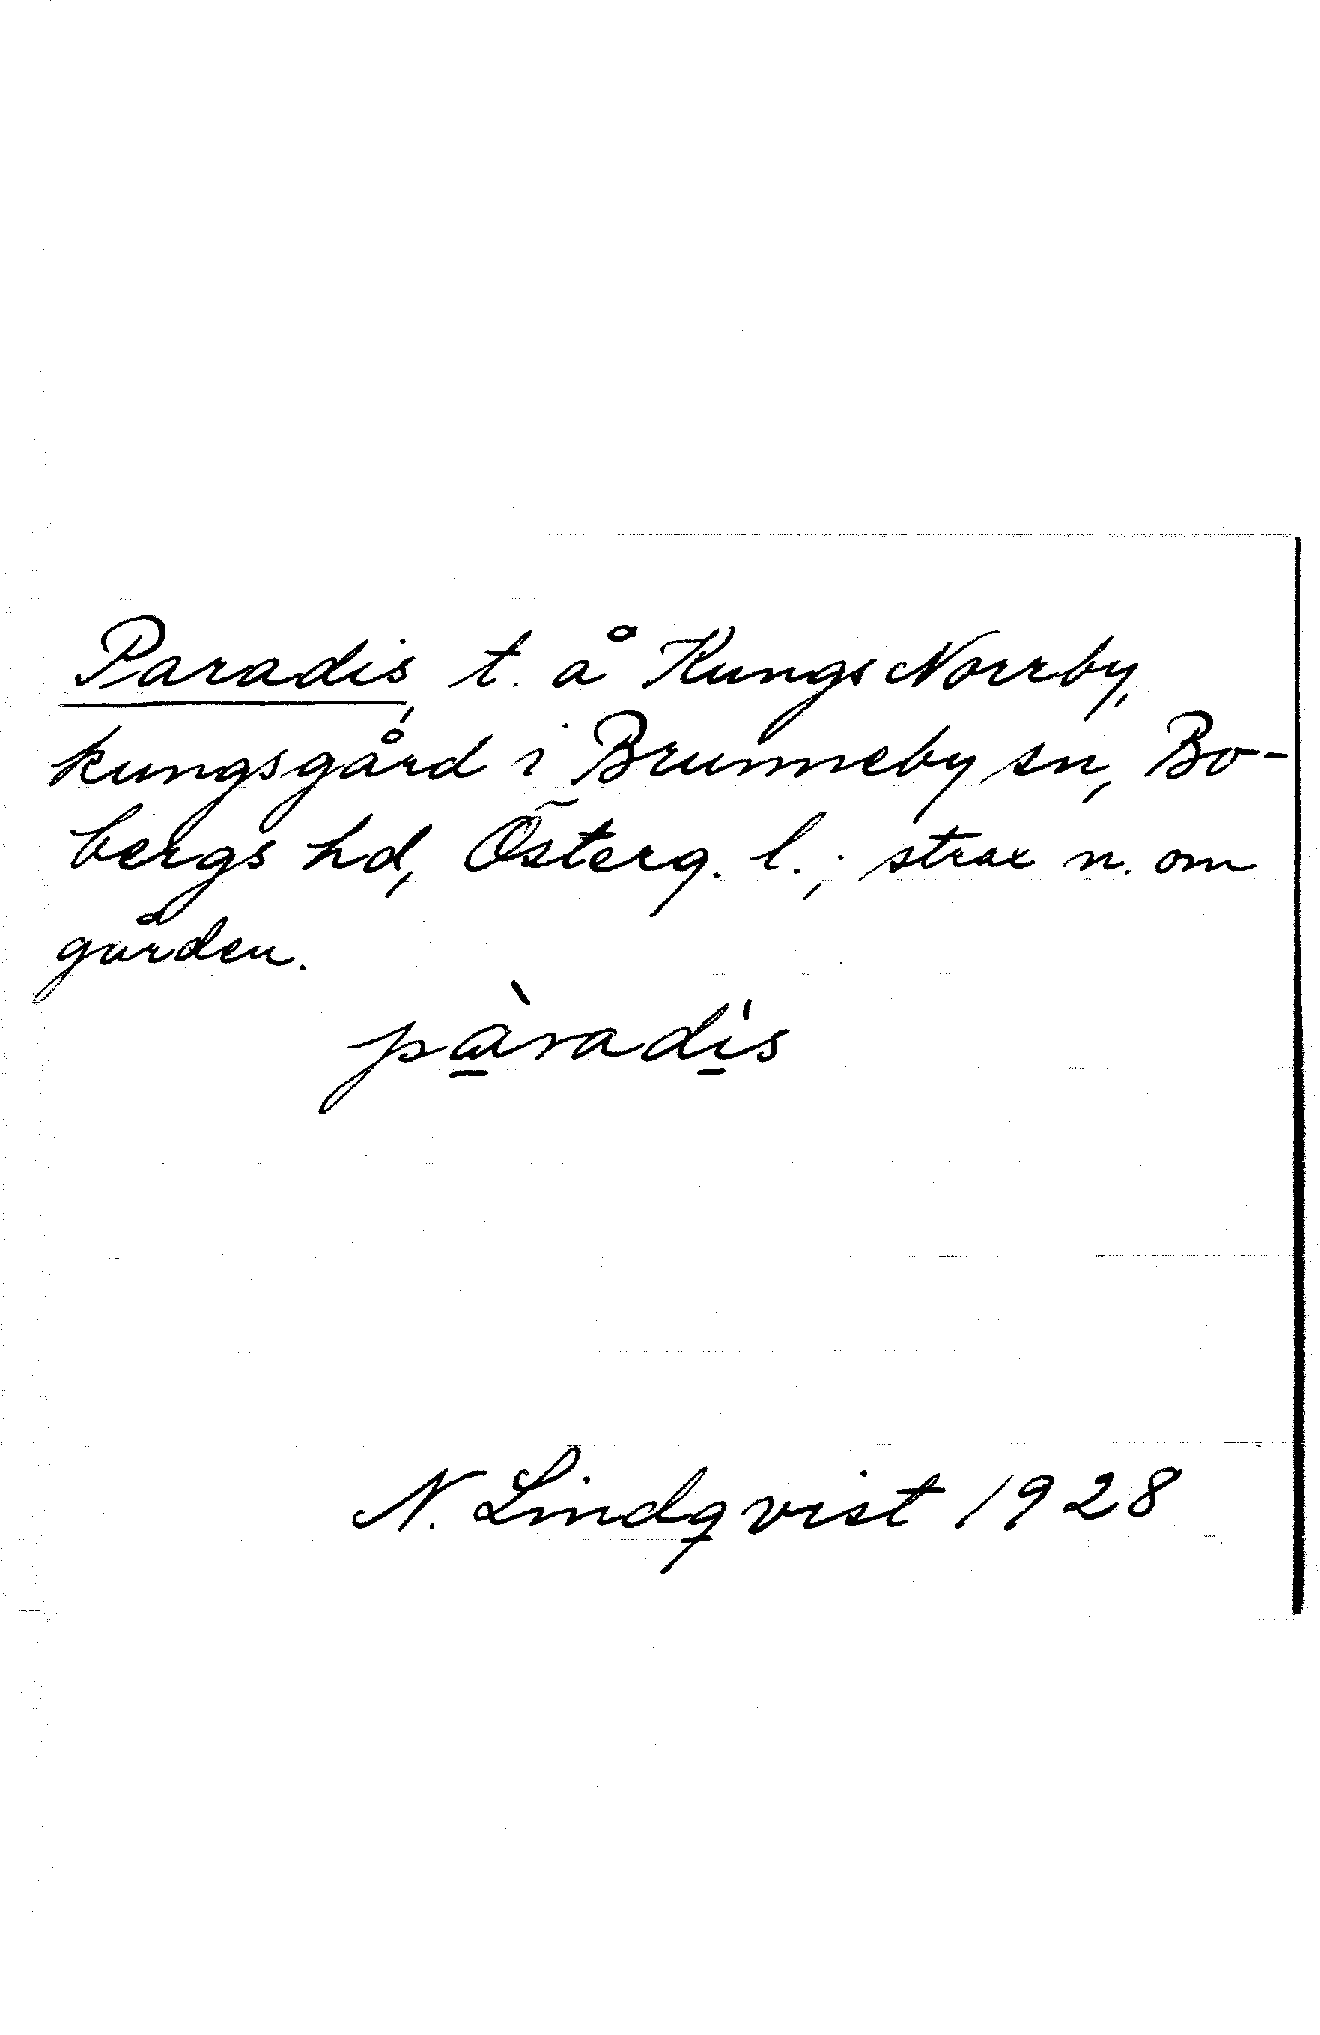 Paradis, t. å Kungs Norrby,
kungsgård i Brunneby sn, Bo-
bergs hd, Österg. l.; strax n. om
gården.
pàradis
N. Lindqvist 1928